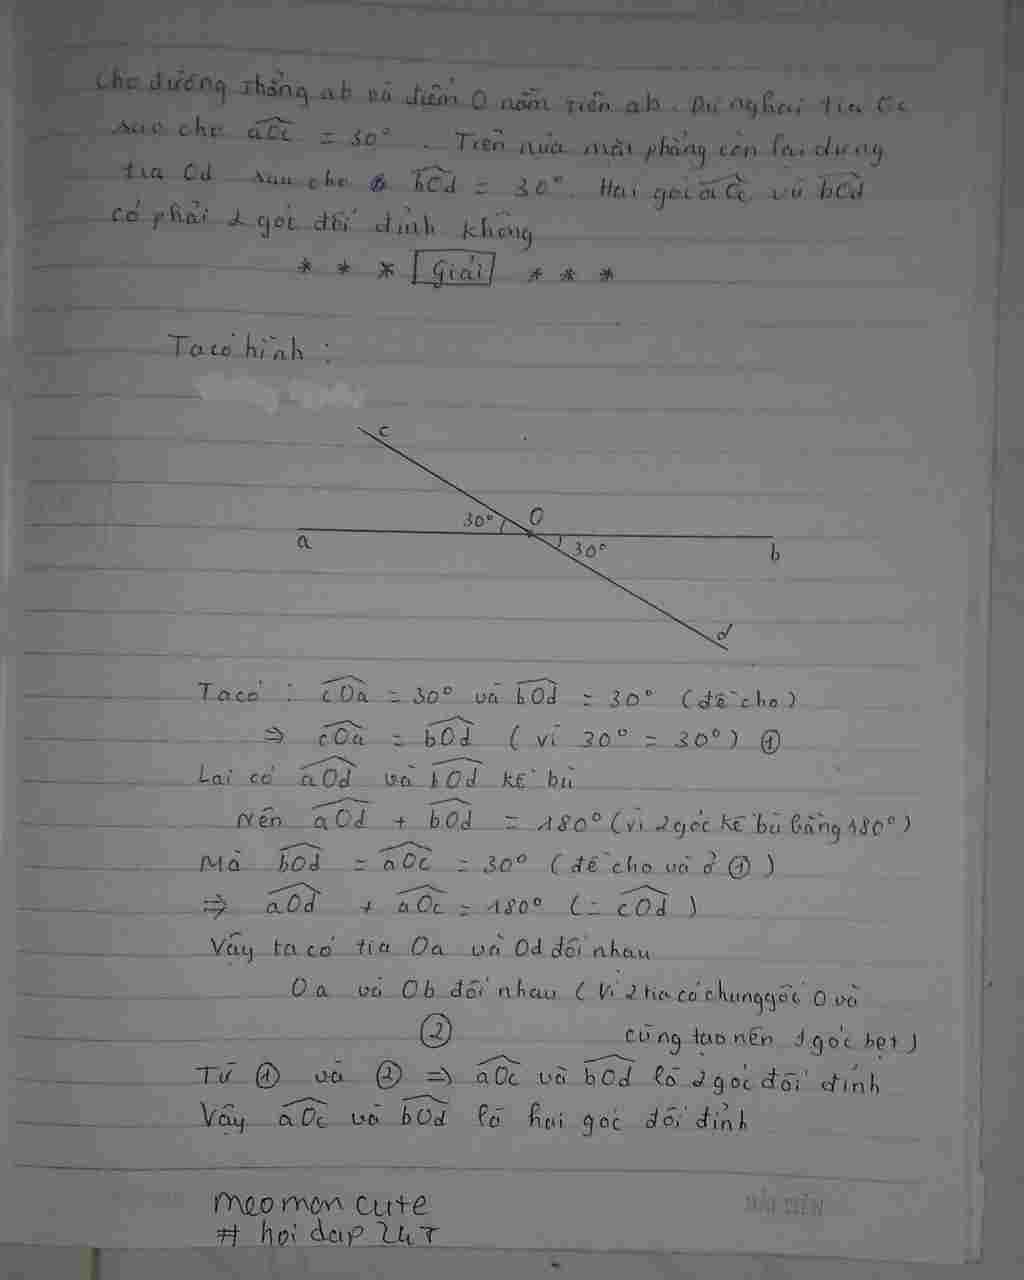 Cho đường thẳng ab và điểm O nằm trên ab. Dựng hai tia Oc
sao cho aOc = 30° . Trên nửa mặt phẳng còn lại dựng
tia Od sao cho bOd = 30°. Hai góc aOc và bOd
có phải 2 góc đối đỉnh không
* * * Giải * * *
Ta có hình :
c
30° O
a 30° b
d
Ta có : cOa = 30° và bOd = 30° (đề cho)
⇒ cOa = bOd ( vì 30° = 30° ) ①
Lại có aOd và bOd kề bù
Nên aOd + bOd = 180° (vì 2 góc kề bù bằng 180°)
Mà bOd = aOc = 30° (đề cho và ở ①)
⇒ aOd + aOc = 180° (= cOd )
Vậy ta có tia Oa và Od đối nhau
Oa và Ob đối nhau ( Vì 2 tia có chung gốc O và
② cùng tạo nên 1 góc bẹt )
Từ ① và ② ⇒ aOc và bOd là 2 góc đối đỉnh
Vậy aOc và bOd là hai góc đối đỉnh
meomon cute
# hoi dap 247